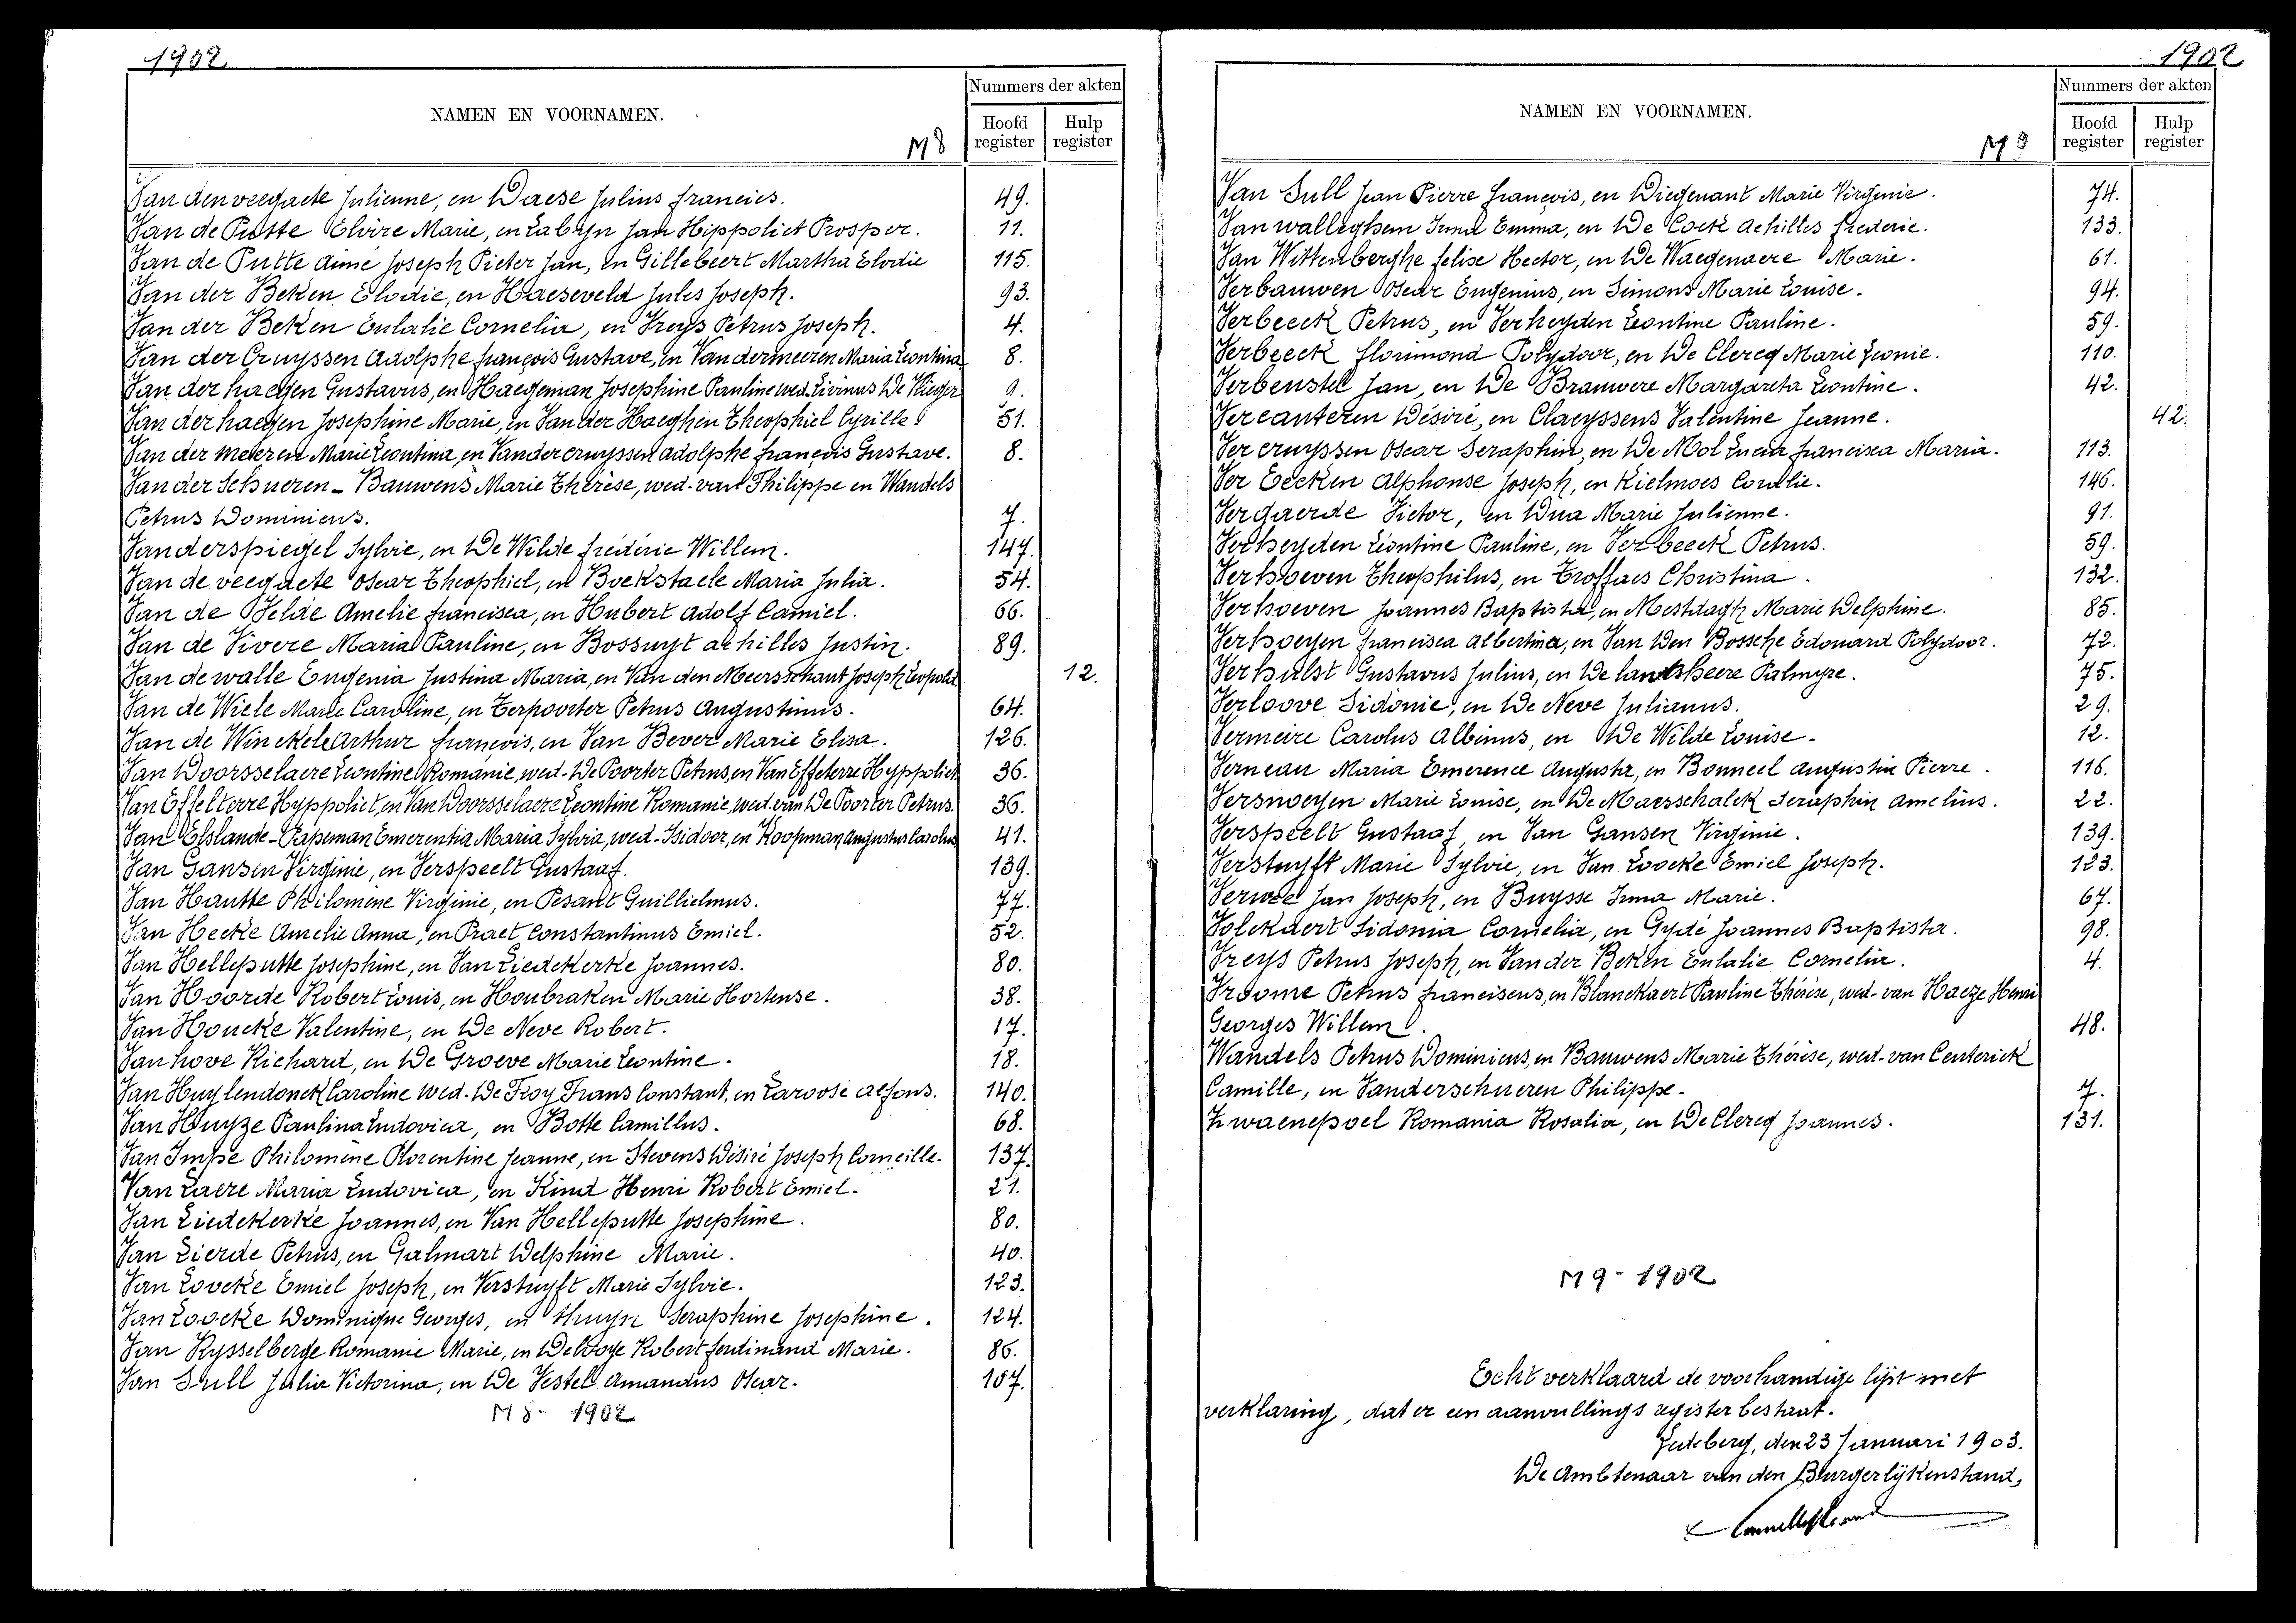 1902.
NAMEN EN VOORNAMEN.
M 8
Nummers der akten
Hoofd register
Hulp register
Van den veegaete Julienne, en Daese Julius francies. 49.
Van de Putte Elvire Marie, en Labijn Jan Hippoliet Prosper. 11.
Van de Putte Aimé Joseph Pieter Jan, en Gillebeert Martha Elodie 115.
Van der Beken Elodie, en Haeseveld Jules Joseph. 93.
Van der Beken Eulalie Cornelia, en Vreys Petrus Joseph. 4.
Van der Cruyssen Adolphe françois Gustave, en Van dermeeren Maria Leontina 8.
Van der haegen Gustavus, en Haegeman Josephine Pauline wed. Livinus De 9.
Van der haegen Josephine Marie, en Van der Haeghen Theophiel Cyrille. 51.
Van der meeren Marie Leontina, en Vandercruyssen Adolphe françois Gustave. 8.
Van der Schueren - Bauwens Marie Thérèse, wed. van Philippe en Wandels
Petrus Dominicus. 7.
Vanderspiegel Sylvie, en De Wilde fréderic Willem. 147.
Van de veegaete Oscar Theophiel, en Boekstaele Maria Julia. 54.
Van de Velde Amelie francisca, en Hubert Adolf Camiel. 66.
Van de Vivere Maria Pauline, en Bossuyt achilles Justin. 89.
Van de walle Eugenia Justina Maria, en Van den Meersschaut Joseph Leopold 12.
Van de Wiele Marie Caroline, en Terpoorter Petrus Augustinus. 64.
Van de Winckele Arthur françois, en Van Bever Marie Elisa. 126.
Van Doorsselaere Leontine Romanie, wed. De Poorter Petrus, en Van Effelterre Hyppoliet 36.
Van Effelterre Hyppoliet, en Van Doorsselaere Leontine Romanie, wed. van De Poorter Petrus. 36.
Van Elslande - Papeman Emerentia Maria Sylvia, wed. Isidoor, en Koopman Augustus Carolus 41.
Van Gansen Virginie, en Verspeelt Gustaaf. 139.
Van Hautte Philomene Virginie, en Pesant Guillielmus. 77.
Van Hecke Amelie Anna, en Praet Constantinus Emiel. 52.
Van Helleputte Josephine, en Van Liedekerke Joannes. 80.
Van Hoorde Robert Louis, en Houbraken Marie Hortense. 38.
Van Houcke Valentine, en De Neve Robert. 17.
Van hove Richard, en De Groeve Marie Leontine. 18.
Van Huylendonck Caroline wed. De Troy Frans Constant, en Laroose Alfons. 140.
Van Huyze Paulina Ludovica, en Botte Camillus. 68.
Van Impe Philomène Florentine Jeanne, en Stevens Désiré Joseph Corneille. 137.
Van Laere Maria Ludovica, en Kind Henri Robert Emiel. 21.
Van Liedekerke Joannes, en Van Helleputte Josephine. 80.
Van Lierde Petrus, en Galmart Delphine Marie. 40.
Van Loocke Emiel Joseph, en Verstuyft Marie Sylvie. 123.
Van Loocke Dominique Georges, en Seraphine Josephine. 124.
Van Rysselberge Romanie Marie, en Debboye Robert ferdinand Marie. 86.
Van Sull Julia Victorina, en De Vestel Amandus Oscar. 107.
M 8 - 1902
1902
NAMEN EN VOORNAMEN.
M 9
Nummers der akten
Hoofd register
Hulp register
Van Sull Jean Pierre françois, en Diegenant Marie Virginie. 74.
Van walleghem Irma Emma, en De Cock Achilles frederic. 133.
Van Wittenberghe felise Hector, en De Waegenaere Marie. 61.
Verbauwen Oscar Eugenius, en Simons Marie Louise. 94.
Verbeeck Petrus, en Verheyden Leontine Pauline. 59.
Verbeeck florimond Polydoor, en De Clercq Marie Leonie. 110.
Verbenstel Jan, en De Brauwere Margareta Leontine. 42.
Vercauteren Désiré, en Claeyssens Valentine Jeanne. 42.
Vercruyssen Oscar Seraphin, en De Mol Lucia francisca Maria. 113.
Ver Eecken Alphonse Joseph, en Kielmoes Coralie. 146.
Vergaerde Victor, en Dua Marie Julienne. 91.
Verheyden Leontine Pauline, en Verbeeck Petrus. 59.
Verhoeven Theophilus, en Troffaes Christina. 132.
Verhoeven Joannes Baptista, en Mestdagh Marie Delphine. 85.
Verhoeyen francisca Albertina, en Van Den Bossche Edouard Polydoor. 72.
Verhulst Gustavus Julius, en De landsheere Palmyre. 75.
Verloove Sidonie, en De Neve Julianus. 29.
Vermeire Carolus Albinus, en De Wilde Louise. 12.
Verneau Maria Emerence Augusta, en Bonneel Augustin Pierre. 116.
Versnoeyen Marie Louise, en De Maesschalck Seraphin Amelius. 22.
Verspeelt Gustaaf, en Van Gansen Virginie. 139.
Verstuyft Marie Sylvie, en Van Loocke Emiel Joseph. 123.
Verwee Jan Joseph, en Buysse Irma Marie. 67.
Volckaert Sidonia Cornelia, en Gydé Joannes Baptista. 98.
Vreys Petrus Joseph, en Van der Beken Eulalie Cornelia. 4.
Vroome Petrus franciscus, en Blanckaert Pauline Thérèse, wed. van Haeze Henri
Georges Willem. 48.
Wandels Petrus Dominicus, en Bauwens Marie Thérèse, wed. van Centerick
Camille, en Vanderschueren Philippe. 7.
Zwaenepoel Romania Rosalia, en De Clercq Joannes. 131.
M 9 - 1902
Echt verklaard de voorhandige lijst met
verklaring, dat er een aanvullings register bestaat.
Ledeberg, den 23 Januari 1903.
De Ambtenaar van den Burgerlijkenstand,